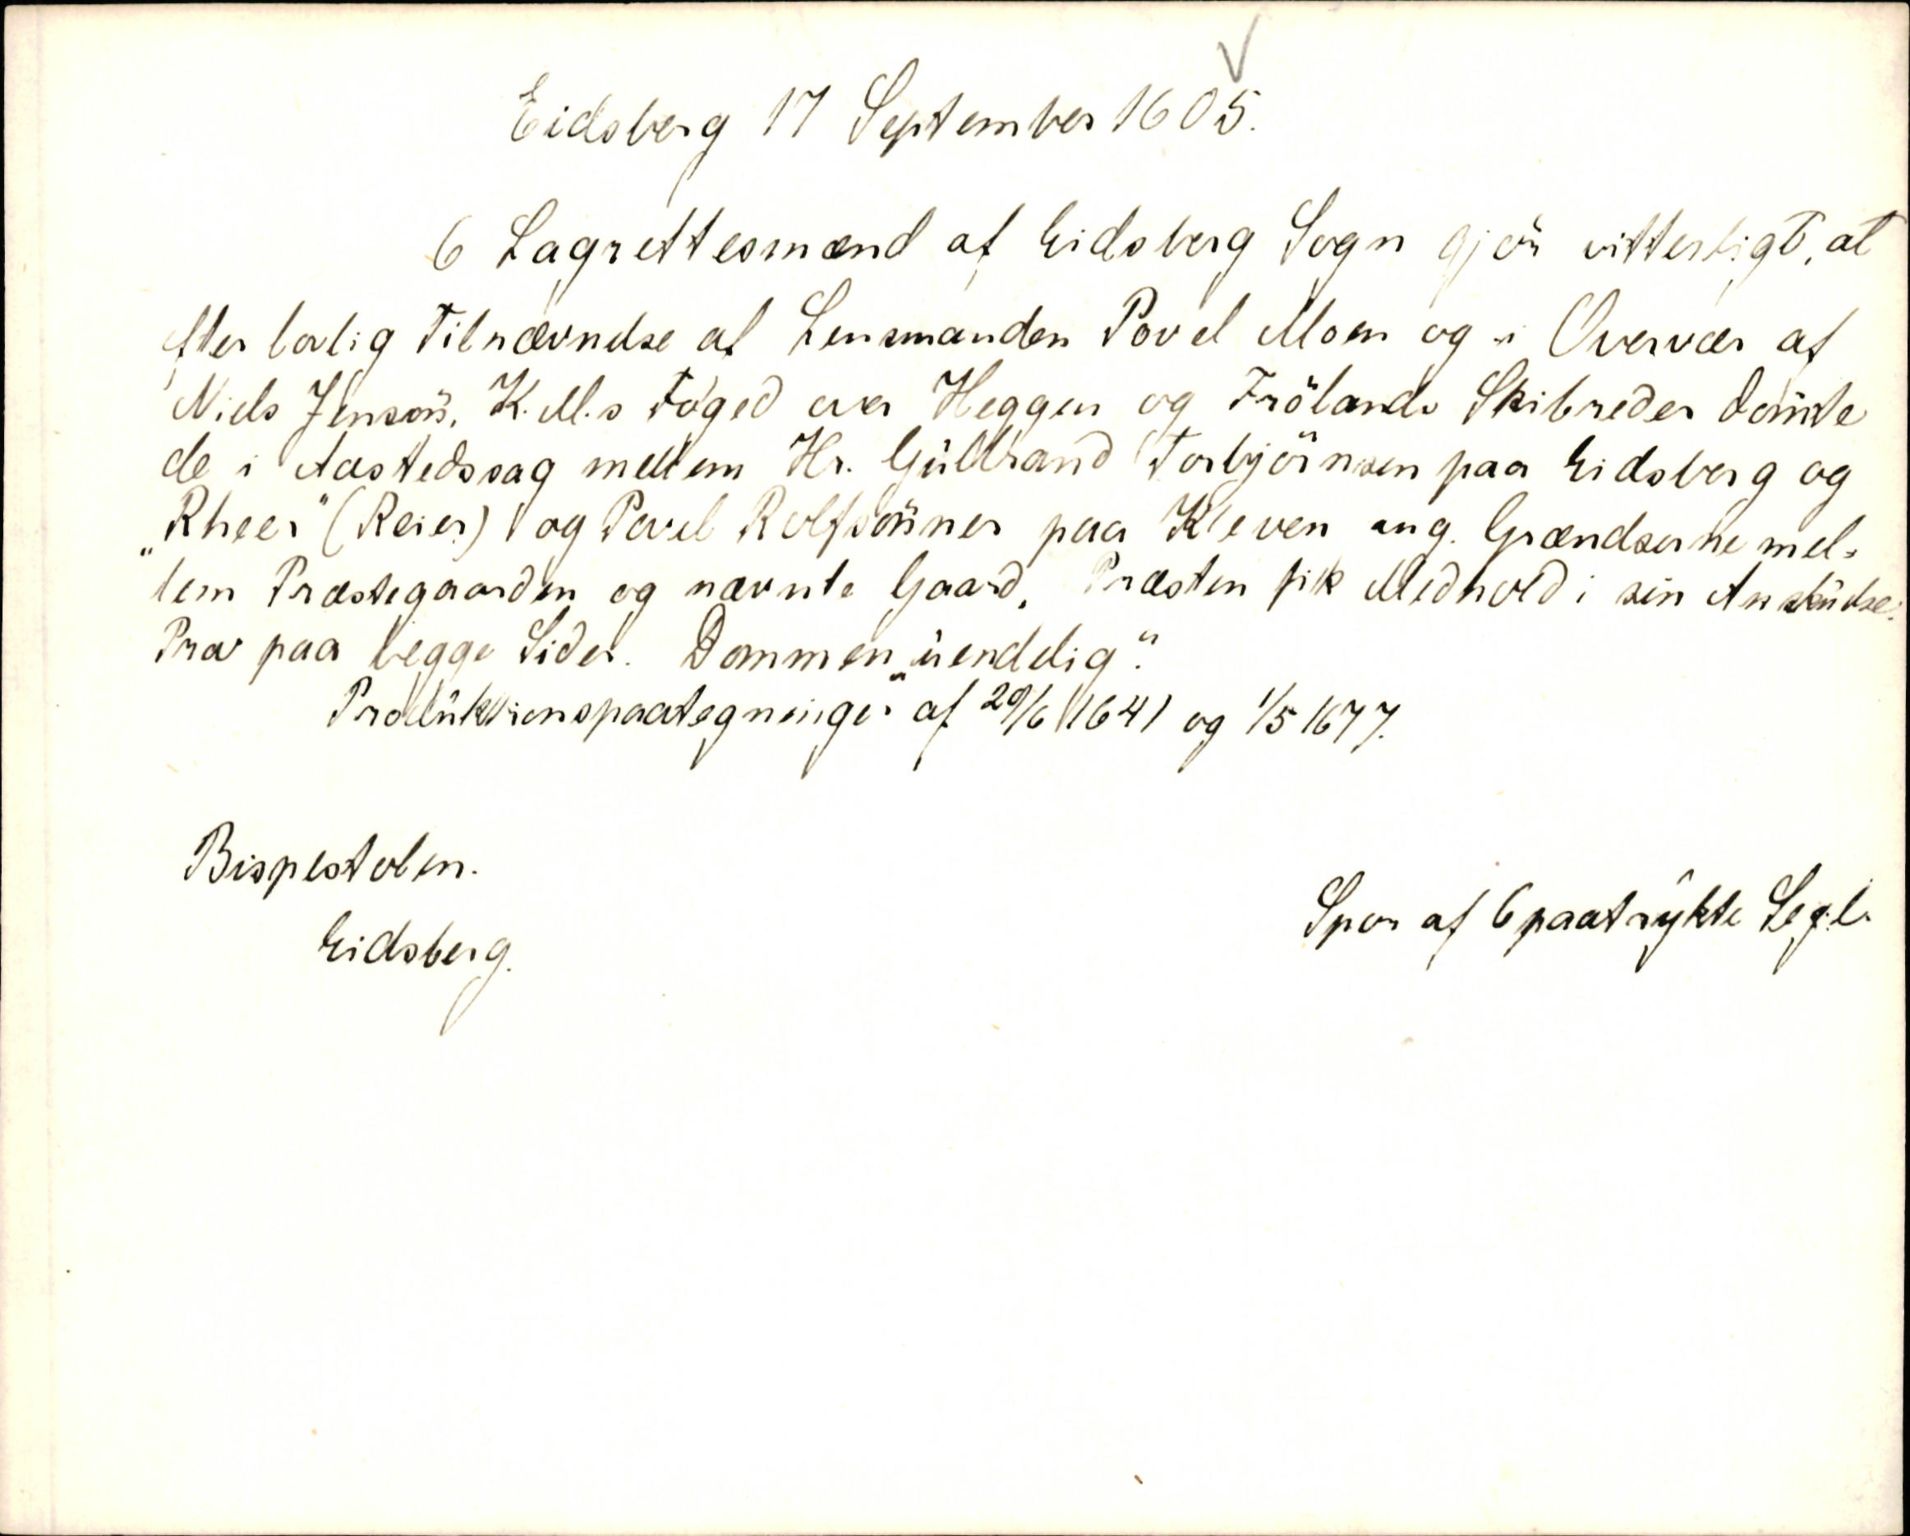 Eidsberg 17 September 1605.
6 Lagrettesmænd af Eidsberg Sogn gjör vitterligt, at
efter lovlig Tilnævndse af Lensmanden Povel Moen og i Overvær af
Niels Jensøn, K. M.s Foged over Heggen og Frölands Skibreder dömte
de i Aastedssag mellem Hr. Gulbrand Torbjörnsen paa Eidsberg og
"Rheer" (Reier) og Povel Rolfsönner paa Kleven ang. Grændserne mel-
lem Præstegaarden og nævnte Gaard. Præsten fik Medhold i sin Anskuelse.
Prov paa begge Sider. Dommen "uendelig".
Produktionspaategninger af 29/6 1641 og 1/5 1677.
Bispestolen.
Eidsberg.
Spor af 6 paatrykte Segl.